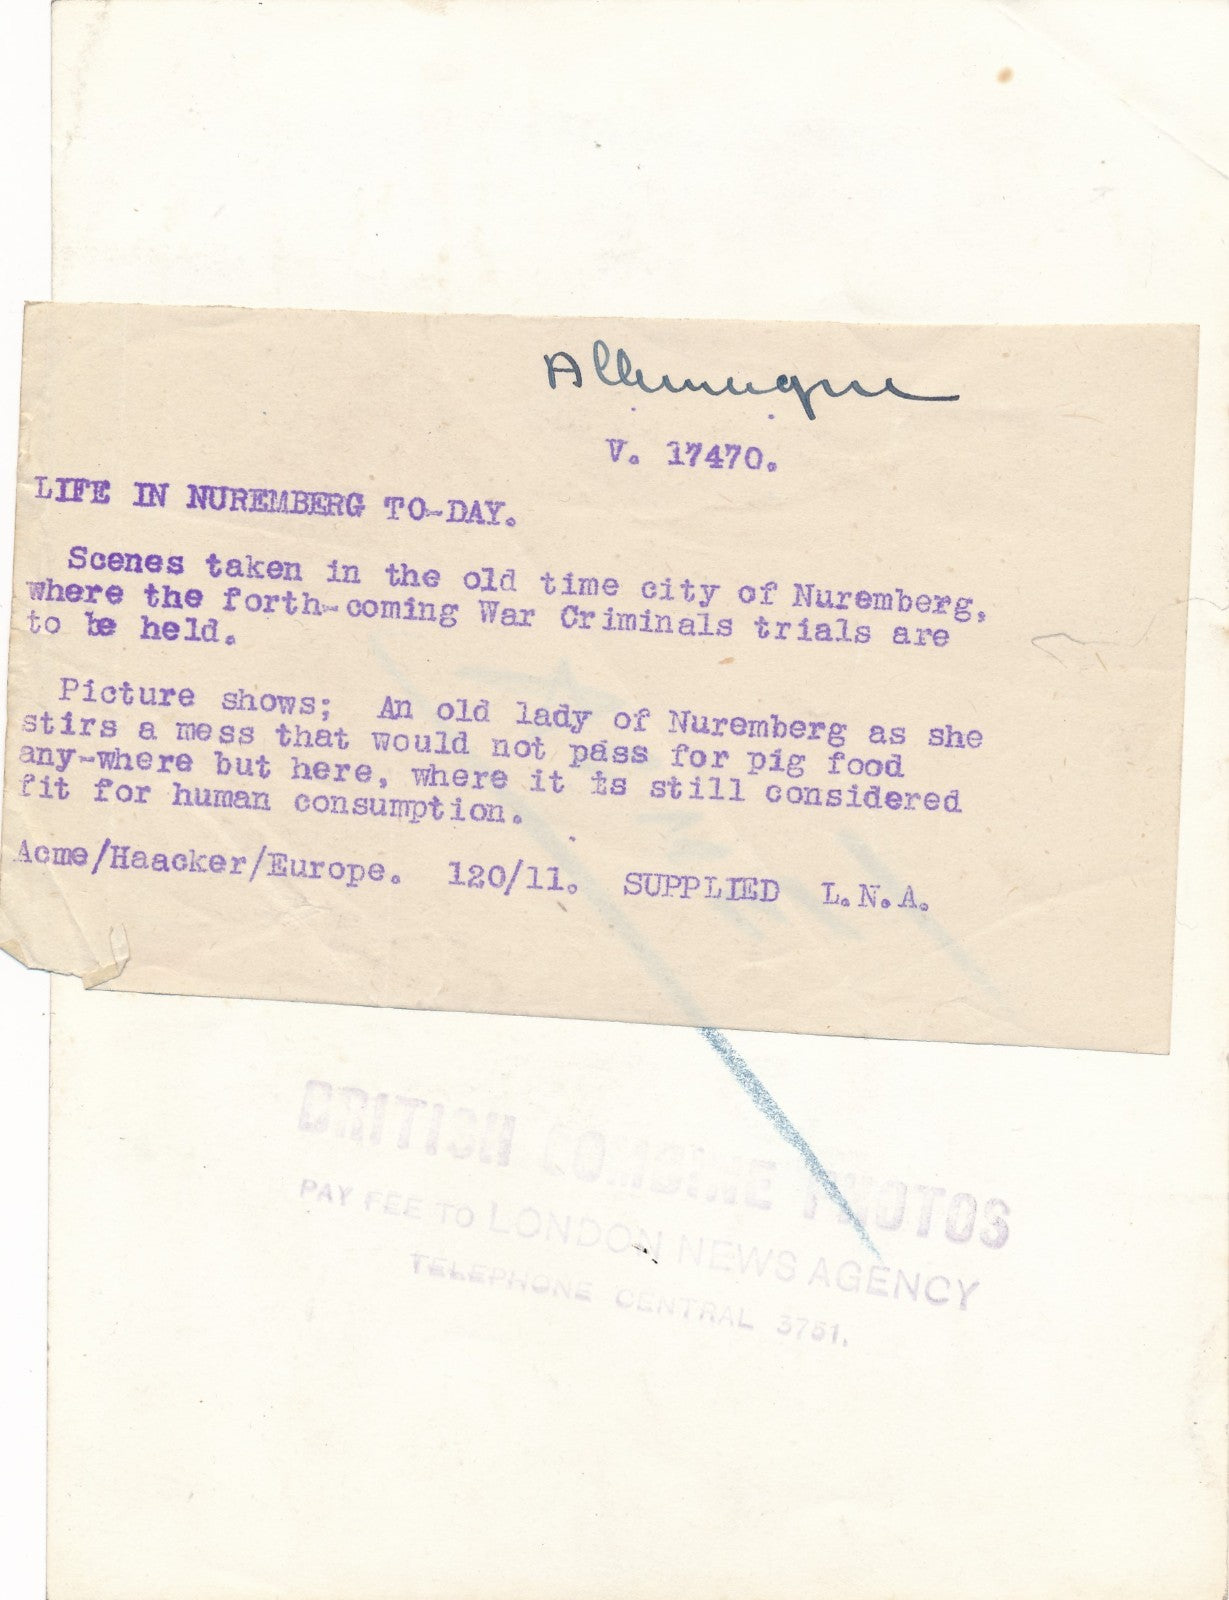 Allemagne
V. 17470.
LIFE IN NUREMBERG TO-DAY.
Scenes taken in the old time city of Nuremberg,
where the forth-coming War Criminals trials are
to be held.
Picture shows; An old lady of Nuremberg as she
stirs a mess that would not pass for pig food
any-where but here, where it is still considered
fit for human consumption.
Acme/Haacker/Europe. 120/11. SUPPLIED L.N.A.
BRITISH COMBINE PHOTOS
PAY FEE TO LONDON NEWS AGENCY
TELEPHONE CENTRAL 3751.